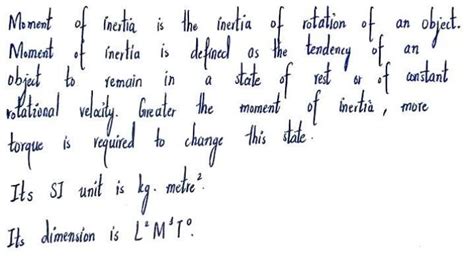 Moment of inertia is the inertia of rotation of an object.
Moment of inertia is defined as the tendency of an
object to remain in a state of rest or of constant
rotational velocity. Greater the moment of inertia, more
torque is required to change this state.
Its SI unit is kg. metre².
Its dimension is L²M¹T⁰.